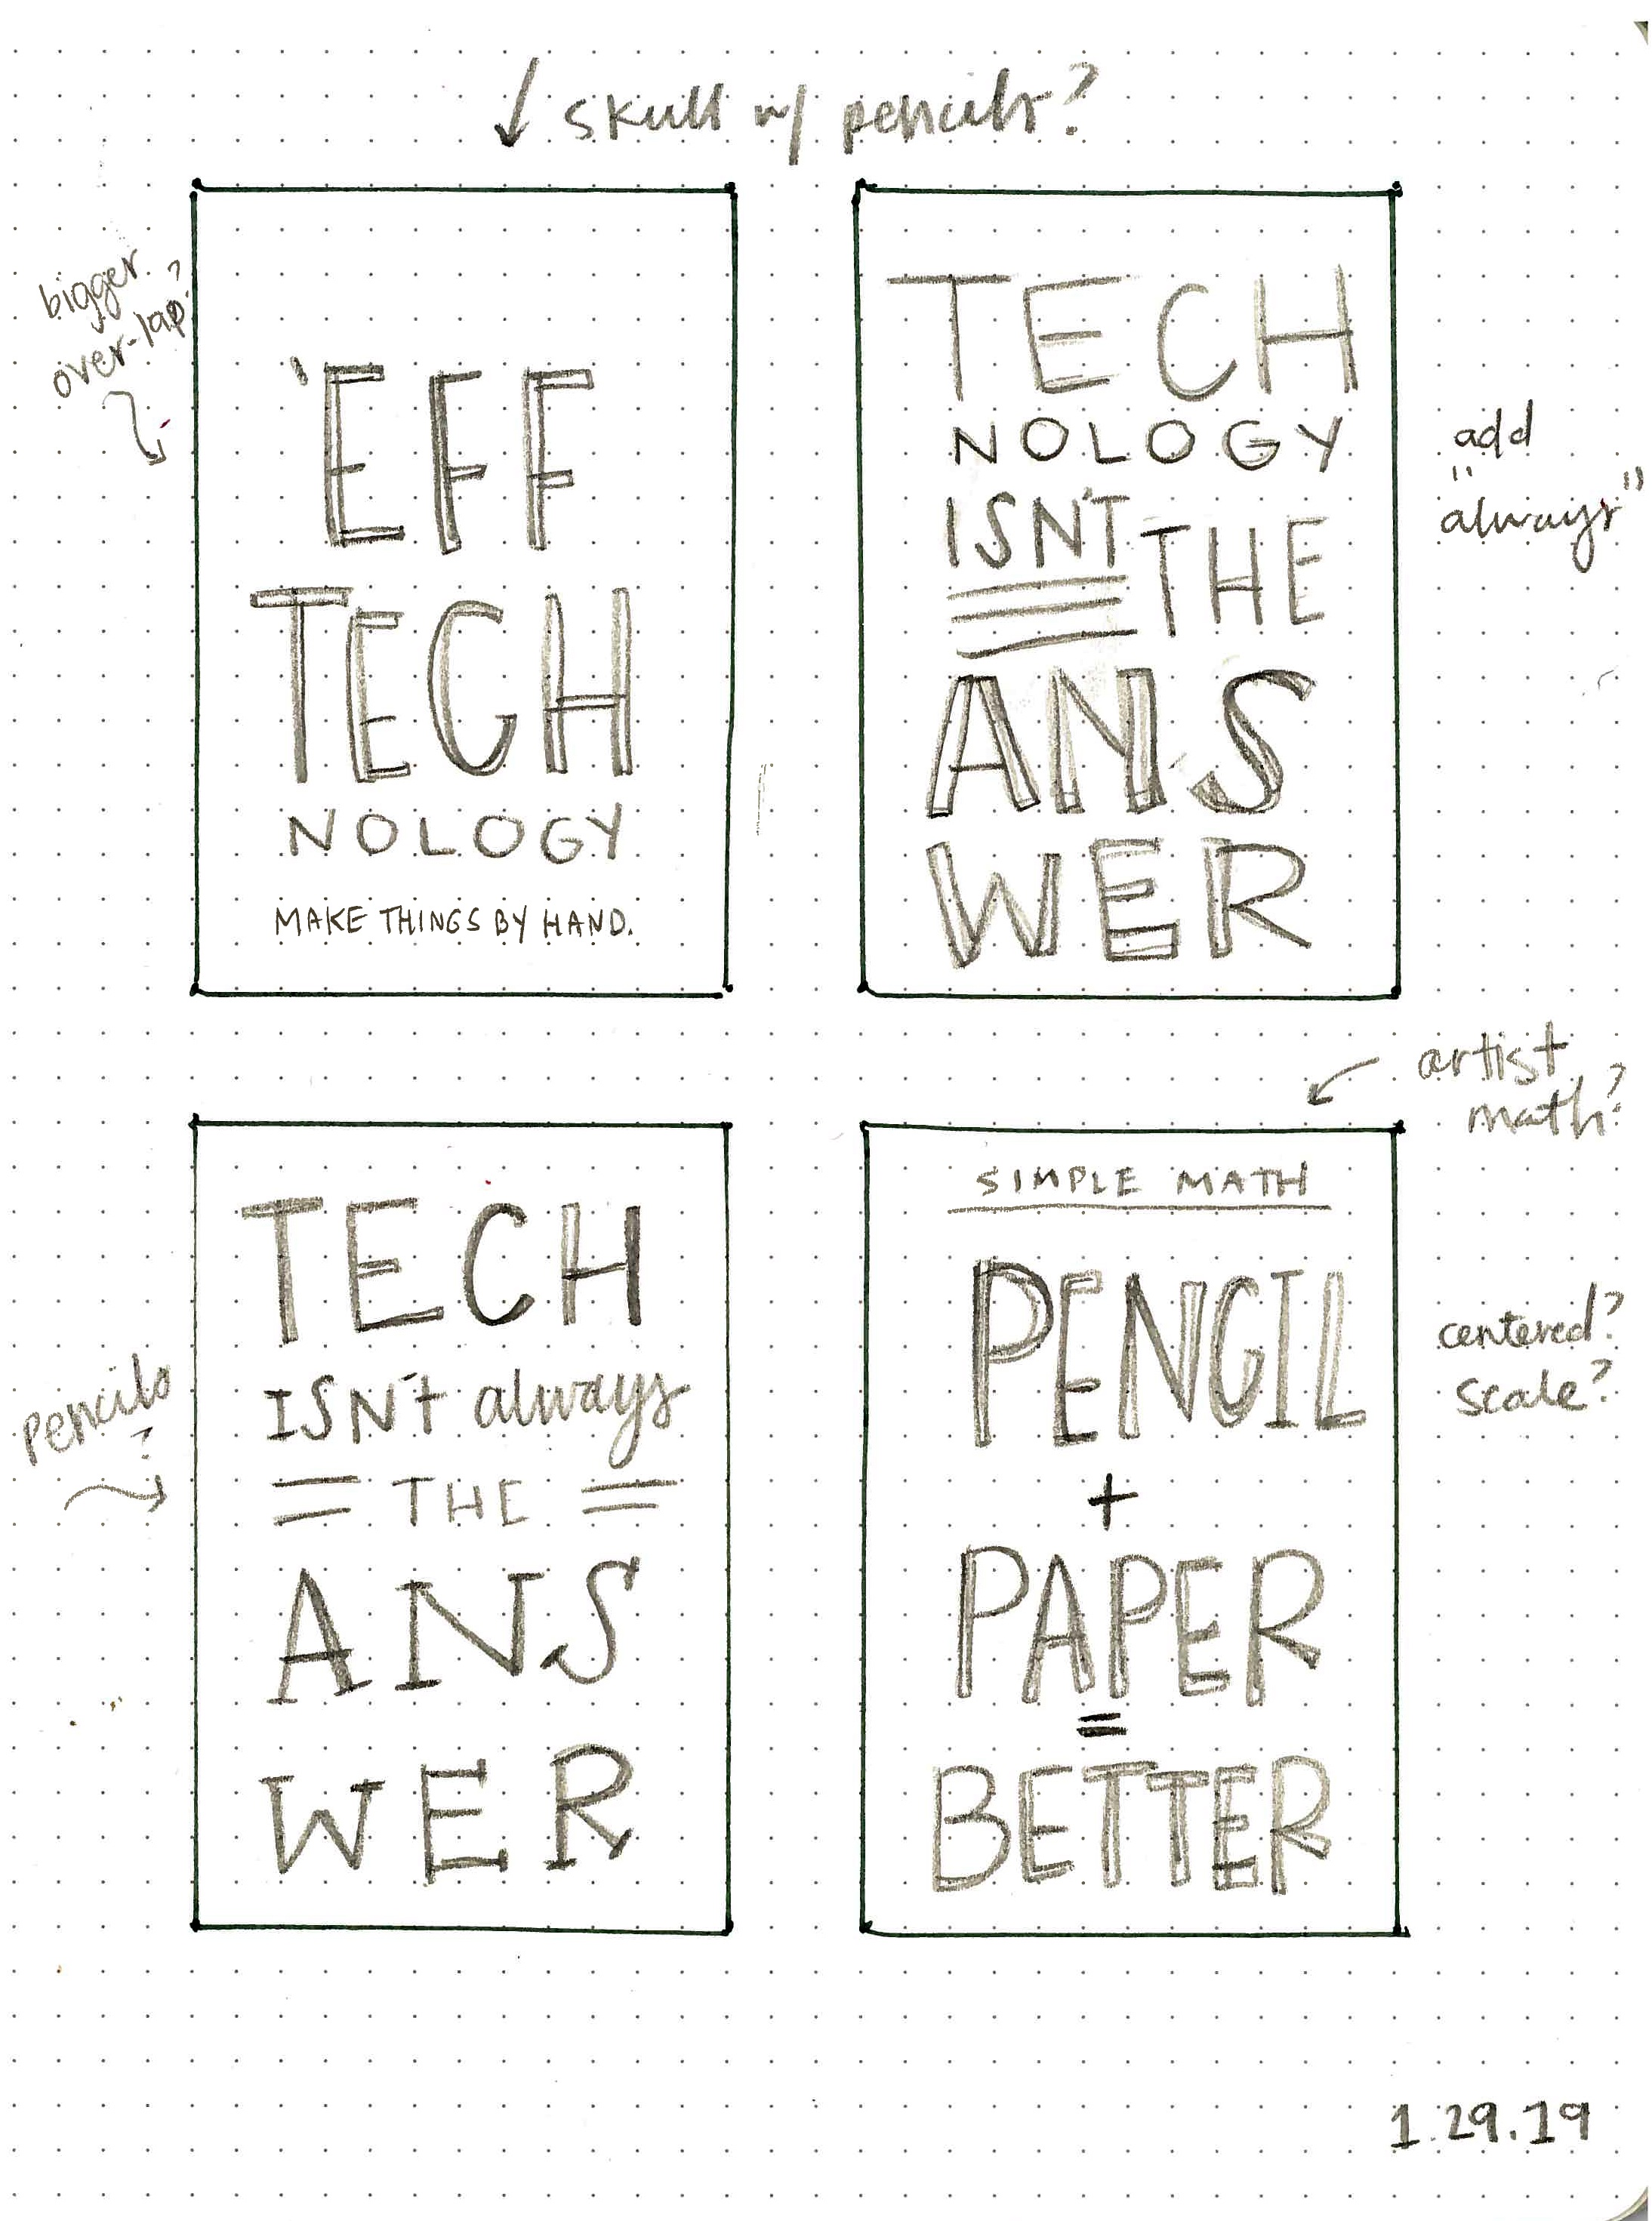 skull w/ pencils?
bigger
over-lap?
'EFF
TECH
NOLOGY
MAKE THINGS BY HAND.
TECH
NOLOGY
ISN'T THE
ANS
WER
add
"always"
pencils
?
TECH
ISN'T always
THE
ANS
WER
artist
math?
SIMPLE MATH
PENCIL
+
PAPER
=
BETTER
centered?
scale?
1.29.19